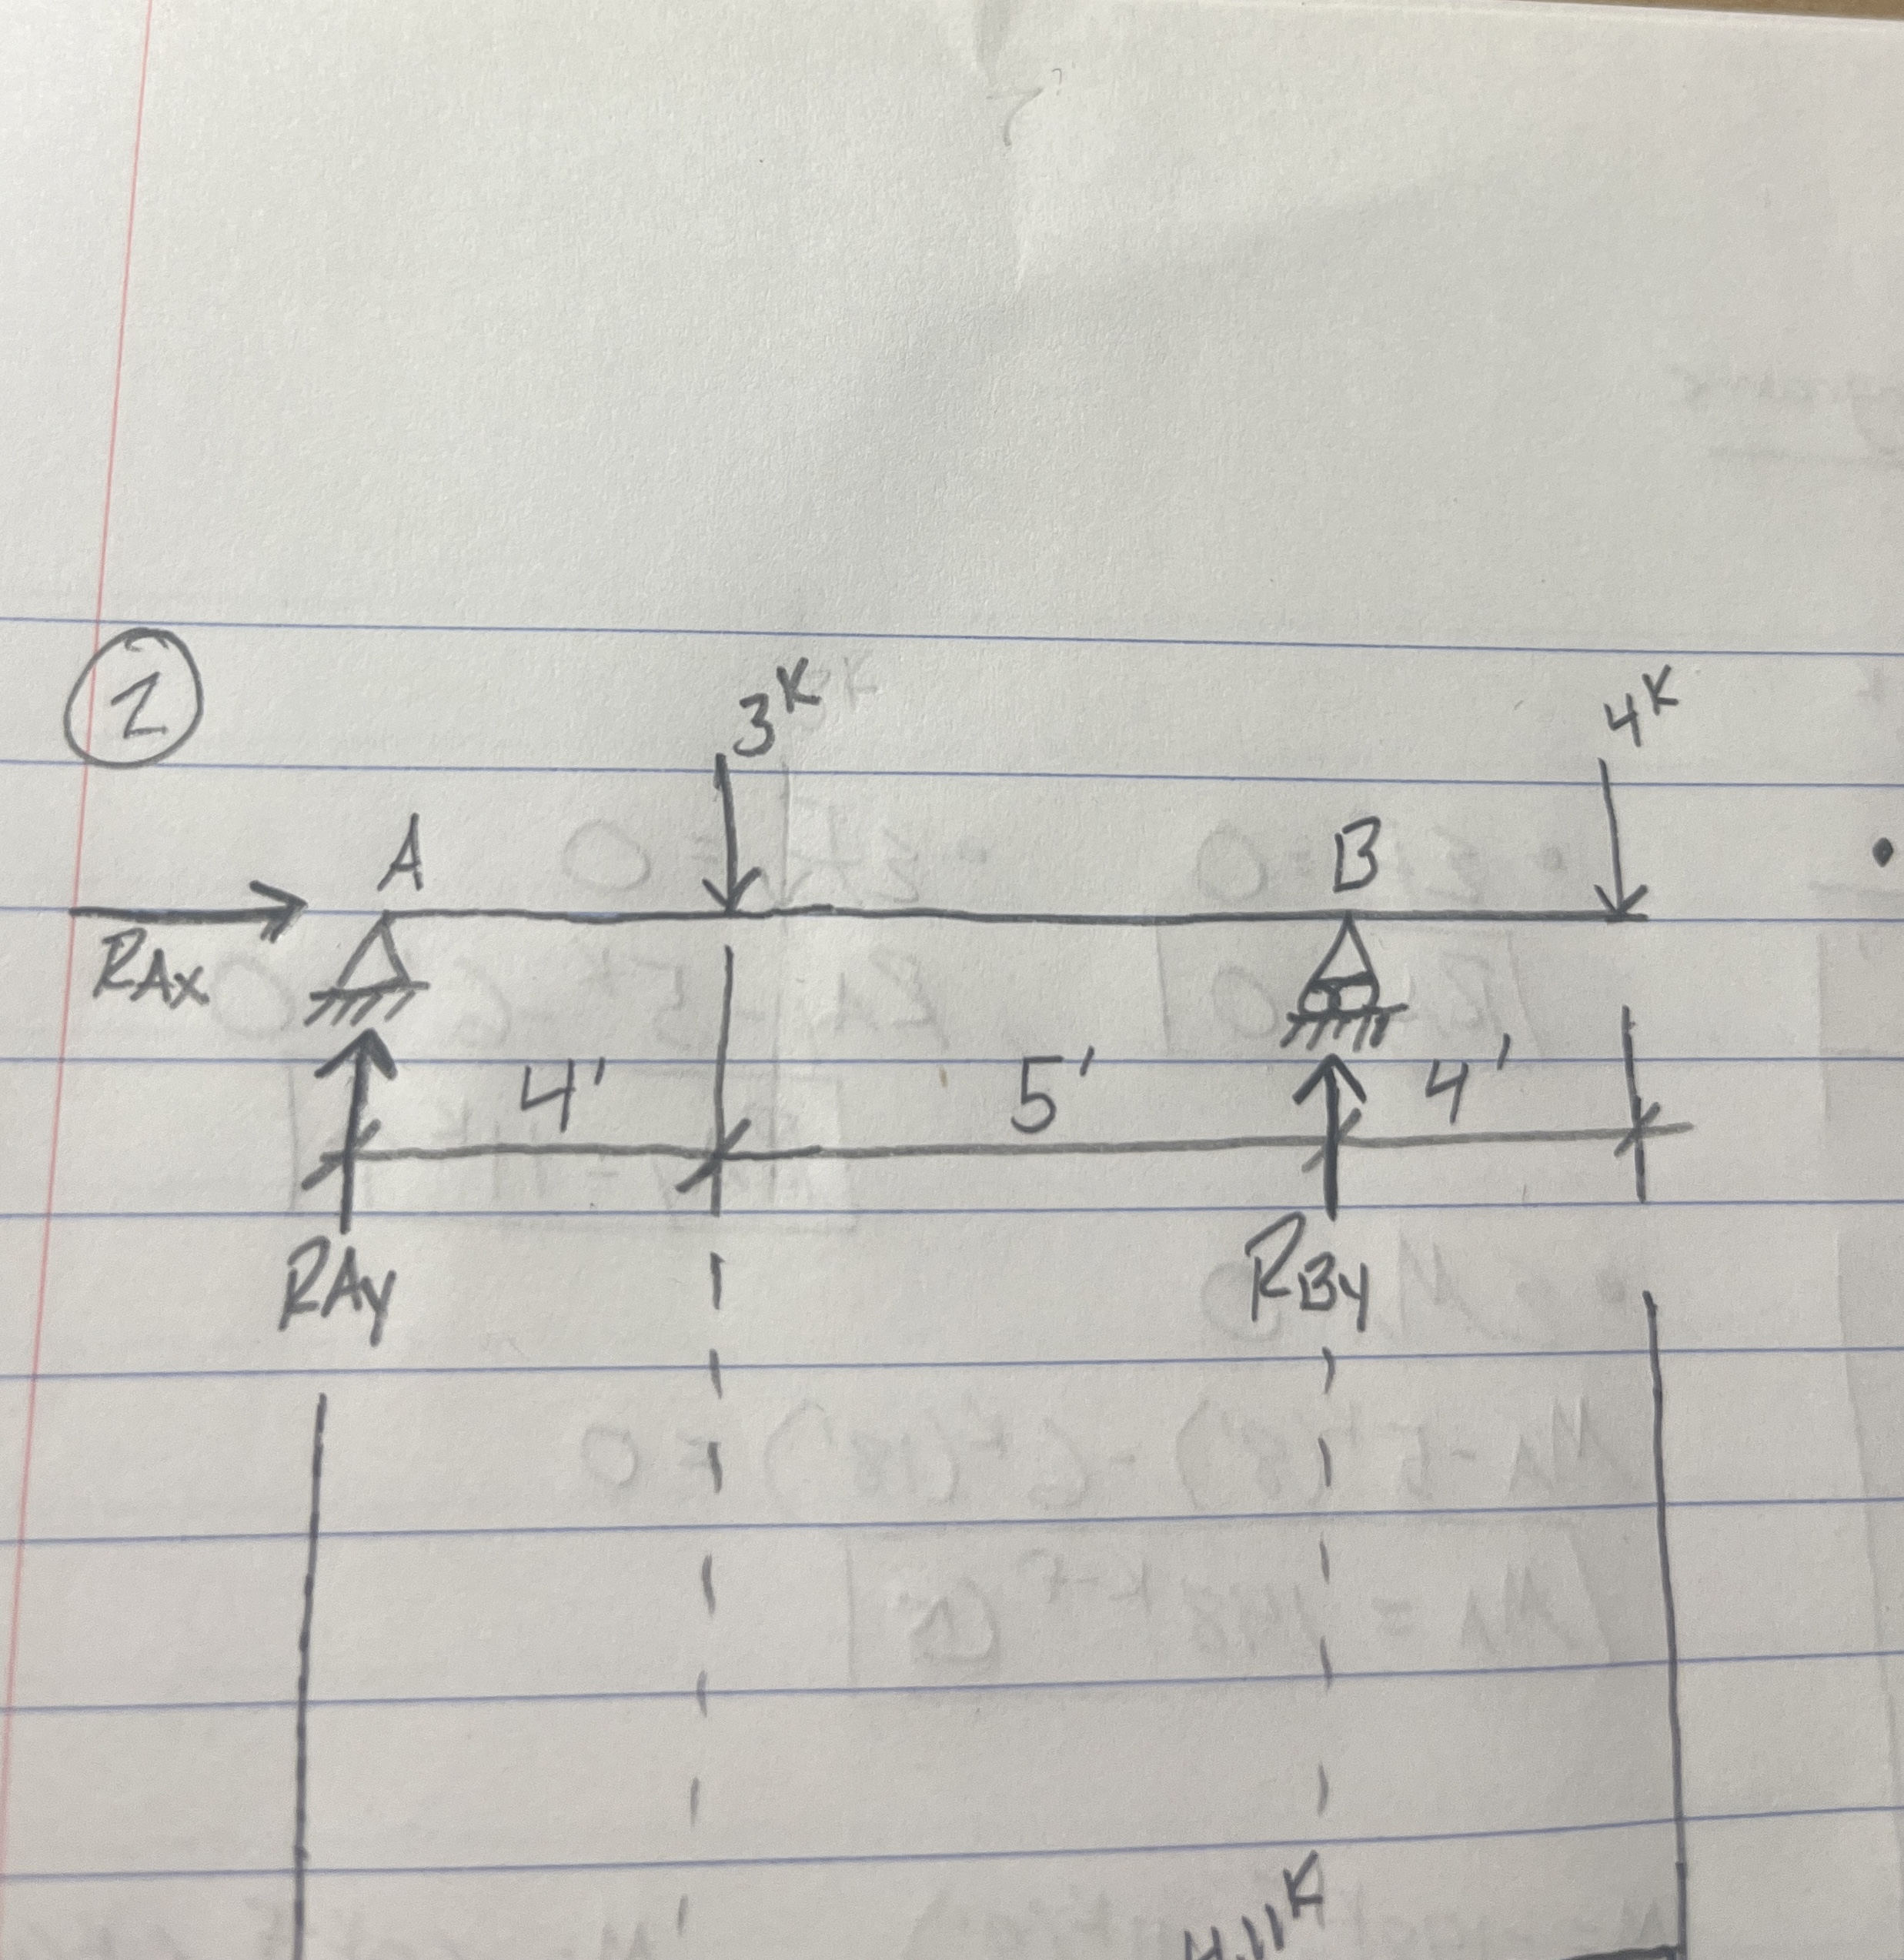 2
3ᴷ 4ᴷ
A B
RAx
4' 5' 4'
RAy RBy